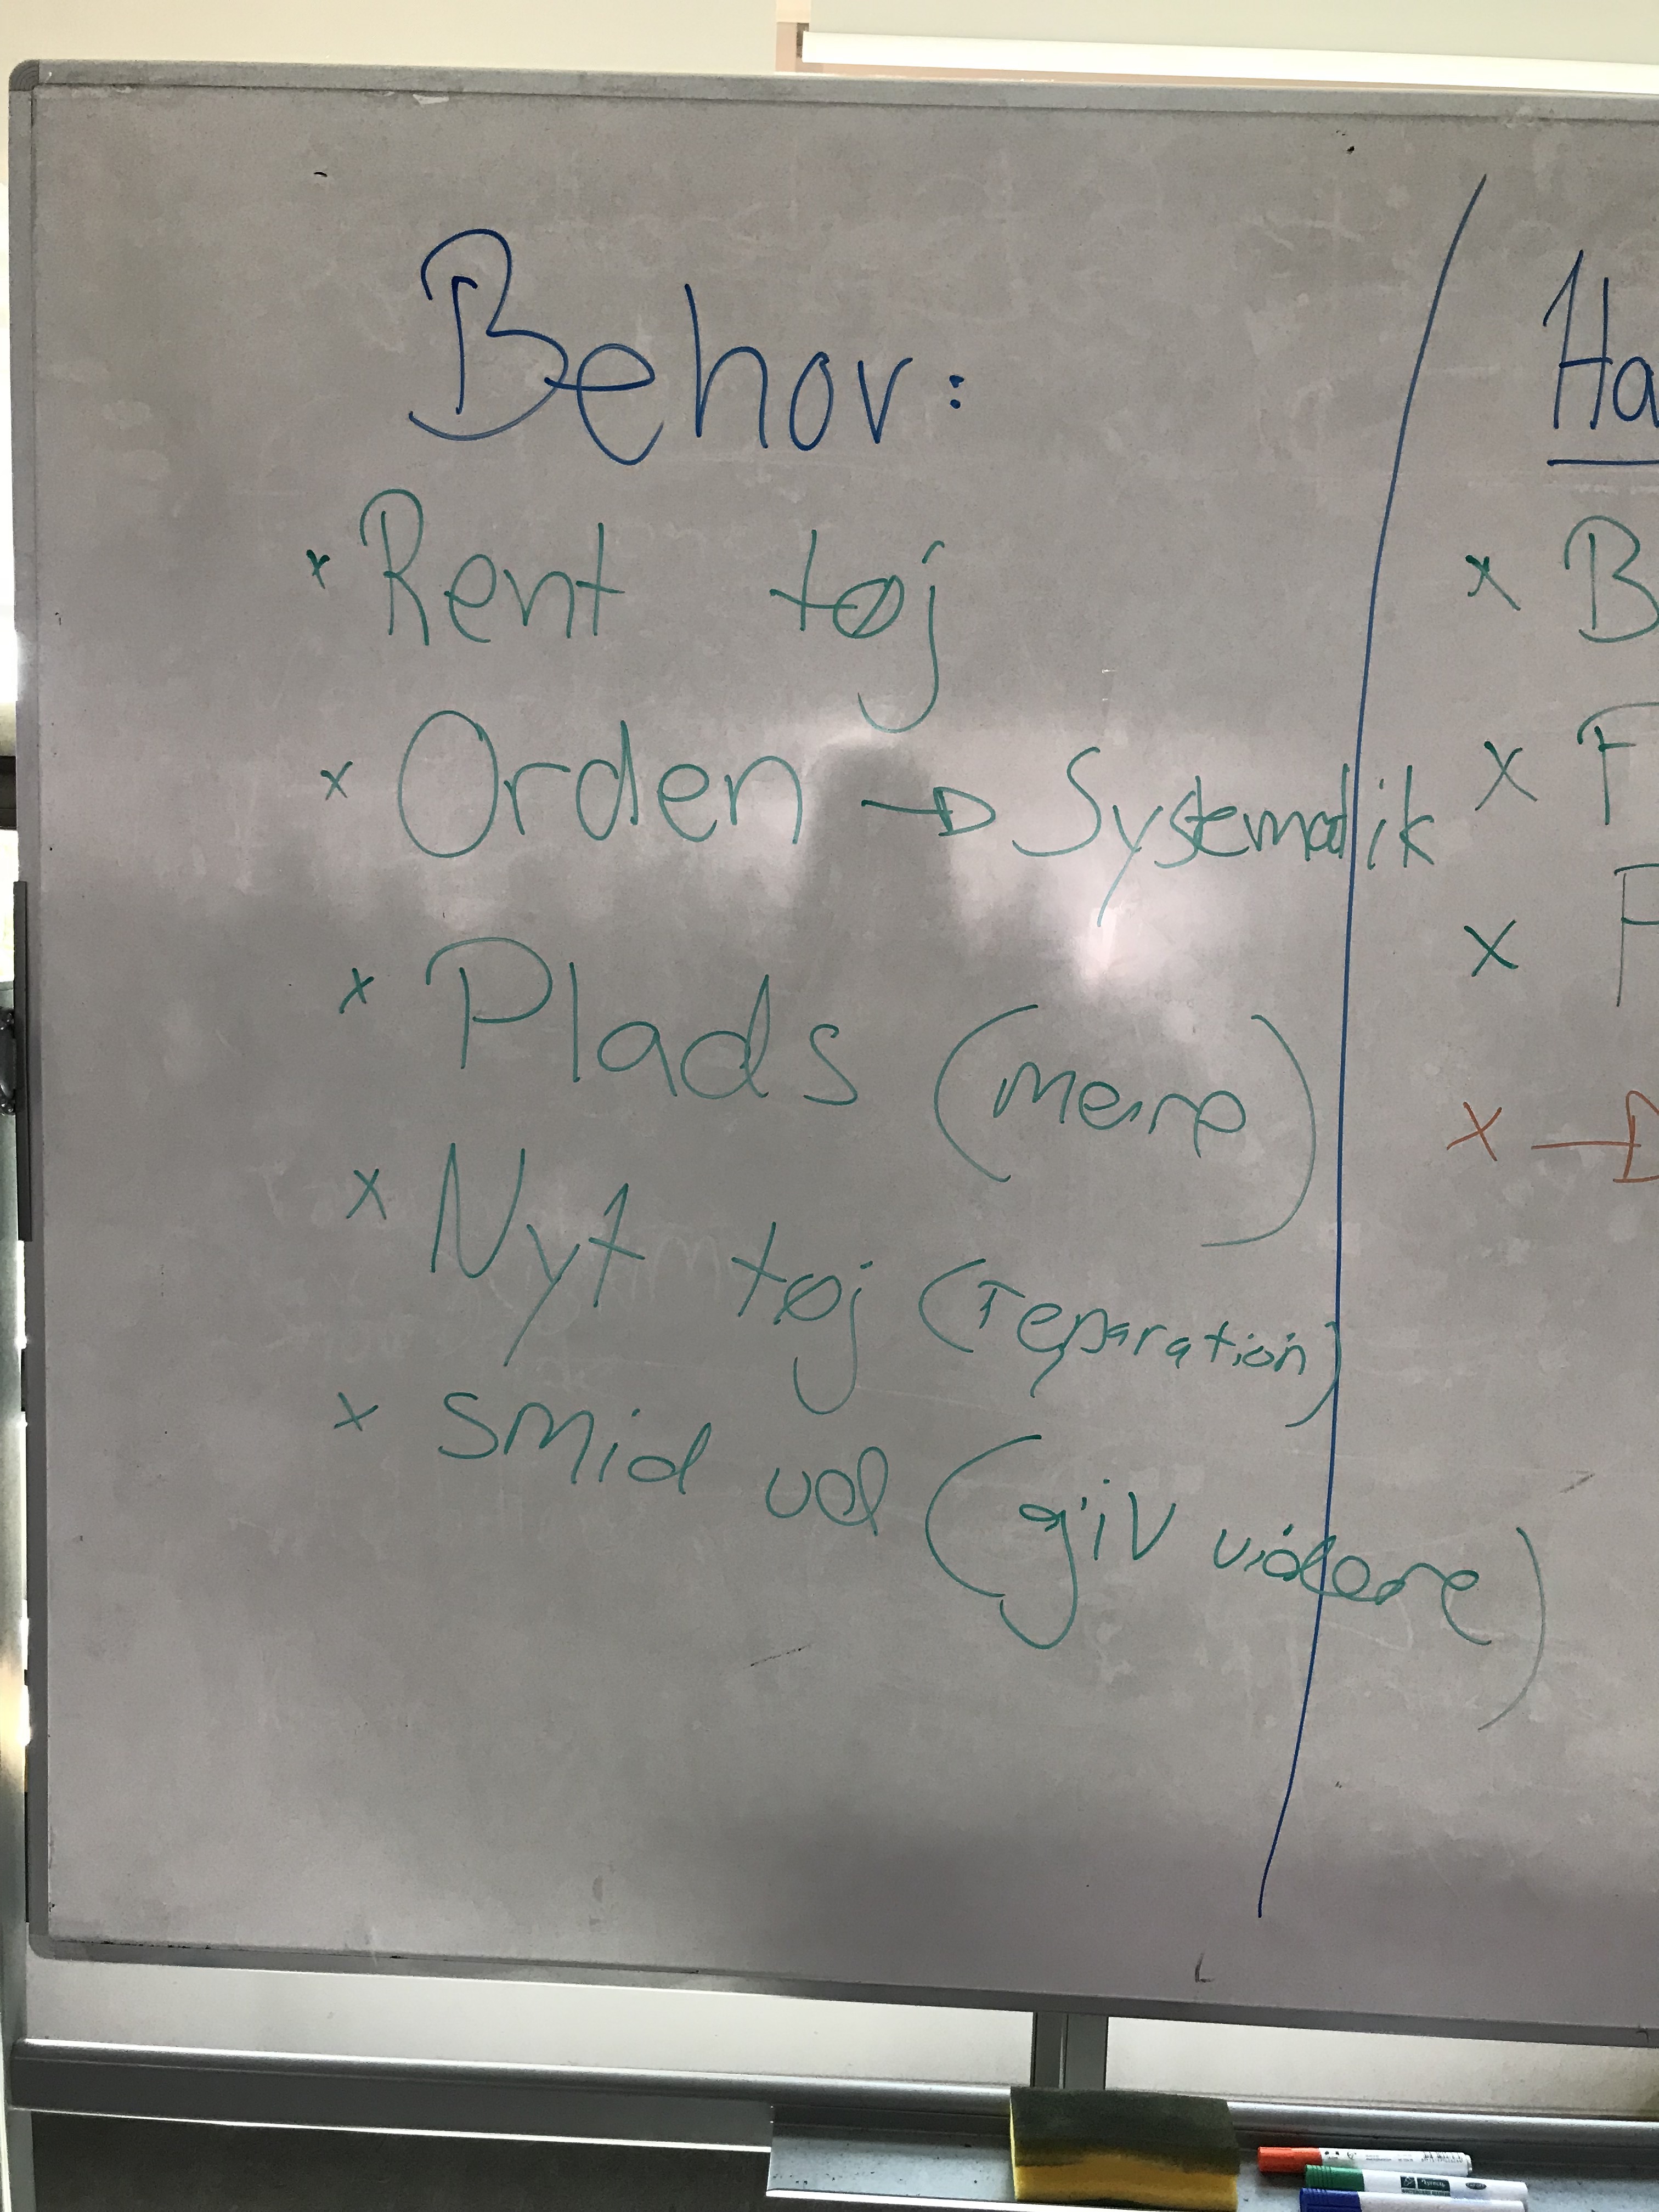 Behov:
x Rent tøj
x Orden → Systematik
x Plads (mere)
x Nyt tøj (reparation)
x smid ud (giv videre)
Ha
x B
x F
x P
x →